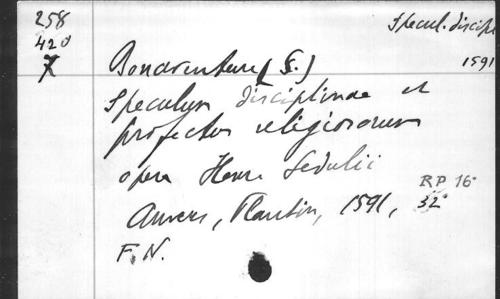 258
420
7
Specul. discipl
1591
Bonaventure (S.)
Speculum disciplinae et
profectus religiosorum
opera Henr Sedulii
Anvers, Plantin, 1591, 32°
RP 16
F. N.